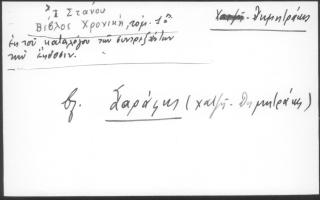 Ἰ. Στάνου
Βίβλος Χρονική, τομ. 1ος
ἐκ τοῦ καταλόγου τῶν συνδρομητῶν
τῆς ἐκδόσεως.
Χατζῆ-Δημητράκης
βλ. Σαράφης (χατζῆ-Δημητράκης)